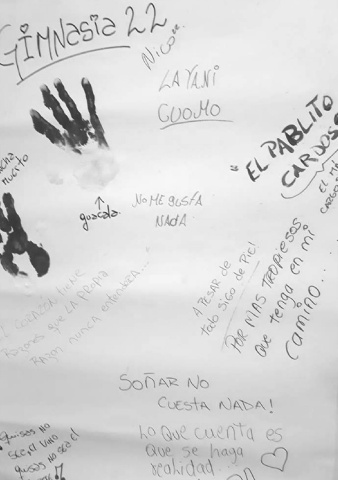 Gimnasia 22
Nico
LA YANI
CUOMO
"EL PABLITO
CARDOS
EL MA
CARGO
MUERTO
guacala
NO ME GUSTA
NADA
A PESAR DE
todo sigo DE PIE!
POR MAS TROPIESOS
que tenga en mi
CAMINO...
CORAZÓN tiENE
Razones que LA PROPIA
RAZON NUNCA entenderá...
SOÑAR NO
CUESTA NADA!
Lo que cuenta es
que se haga
realidad
quisas no
sea el uno
quisas no sea el